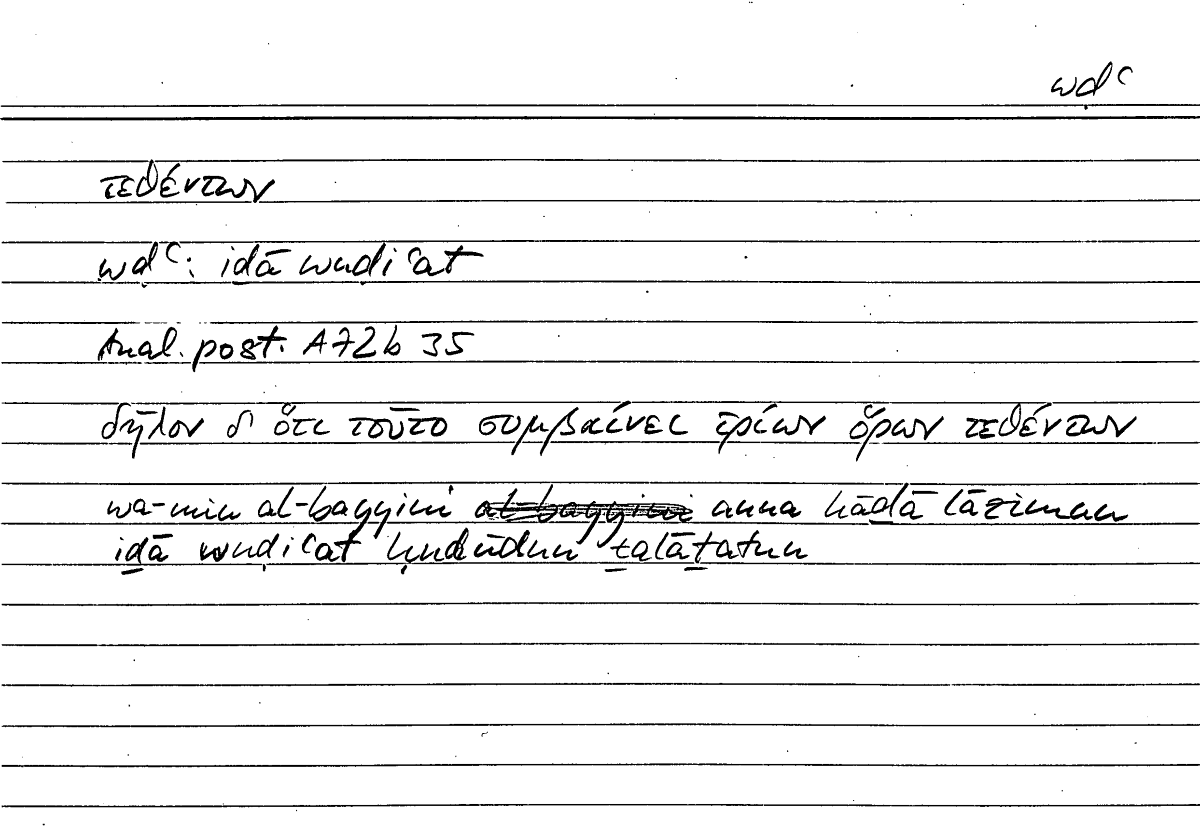 wḍʿ
τεθέντων
wḍʿ: iḏā wuḍiʿat
Anal. post. A72b 35
δῆλον δ' ὅτι τοῦτο συμβαίνει τρίων ὅρων τεθέντων
wa-min al-bayyini anna hāḏā lāziman
iḏā wuḍiʿat ḥudūdun ṯalāṯatun